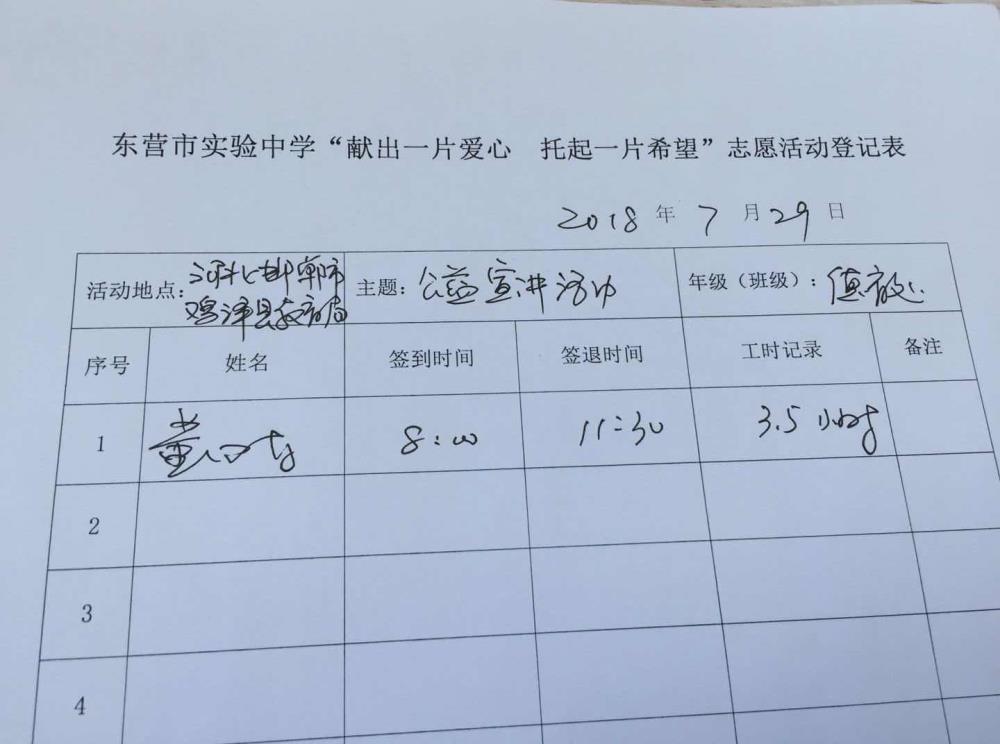 东营市实验中学“献出一片爱心 托起一片希望”志愿活动登记表
2018 年 7 月 29 日
活动地点:河北邯郸市鸡泽县教育局 主题:公益宣讲活动 年级(班级):
序号 姓名 签到时间 签退时间 工时记录 备注
1 董 8:00 11:30 3.5小时
2
3
4